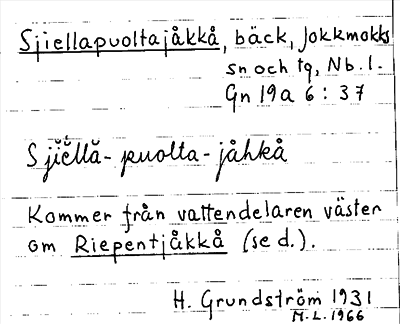 Sjiellapuoltajåkkå, bäck, Jokkmokks
sn och tg, Nb. l.
Gn 19a 6 : 37
Sjĭĕ̆llă-puolta-jåhkå
Kommer från vattendelaren väster
om Riepentjåkkå (se d.).
H. Grundström 1931
M.L. 1966